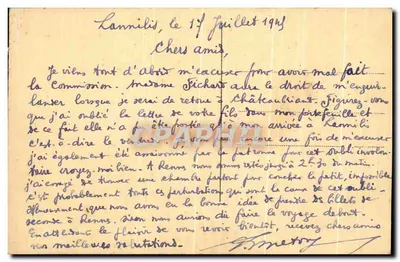 Lannilis, le 17 Juillet 1945
Chers amis,
Je viens tout d'abord m'excuser pour avoir mal fait
la Commission. Madame Fichard aura le droit de m'engueu-
lander lorsque je serai de retour à Châteaubriant. Figurez-vous
que j'ai oublié la lettre de votre fils dans mon portefeuille et
de ce fait elle n'a été postée qu'à mon arrivée à Lannilis
c'est-à-dire le encore une fois de m'excuser
j'ai également été par la patronne pour cet oubli involon-
taire croyez-moi bien. A Rennes nous sommes restés jusqu'à 2h30 du matin
j'ai essayé de trouver une chambre partout pour coucher le petit, impossible
c'est probablement toutes ces perturbations qui sont la cause de cet oubli.
Heureusement que nous avons eu la bonne idée de prendre des billets de
seconde à Rennes, sinon nous aurions dû faire le voyage debout.
En attendant le plaisir de vous revoir bientôt, recevez chers amis
nos meilleures salutations.